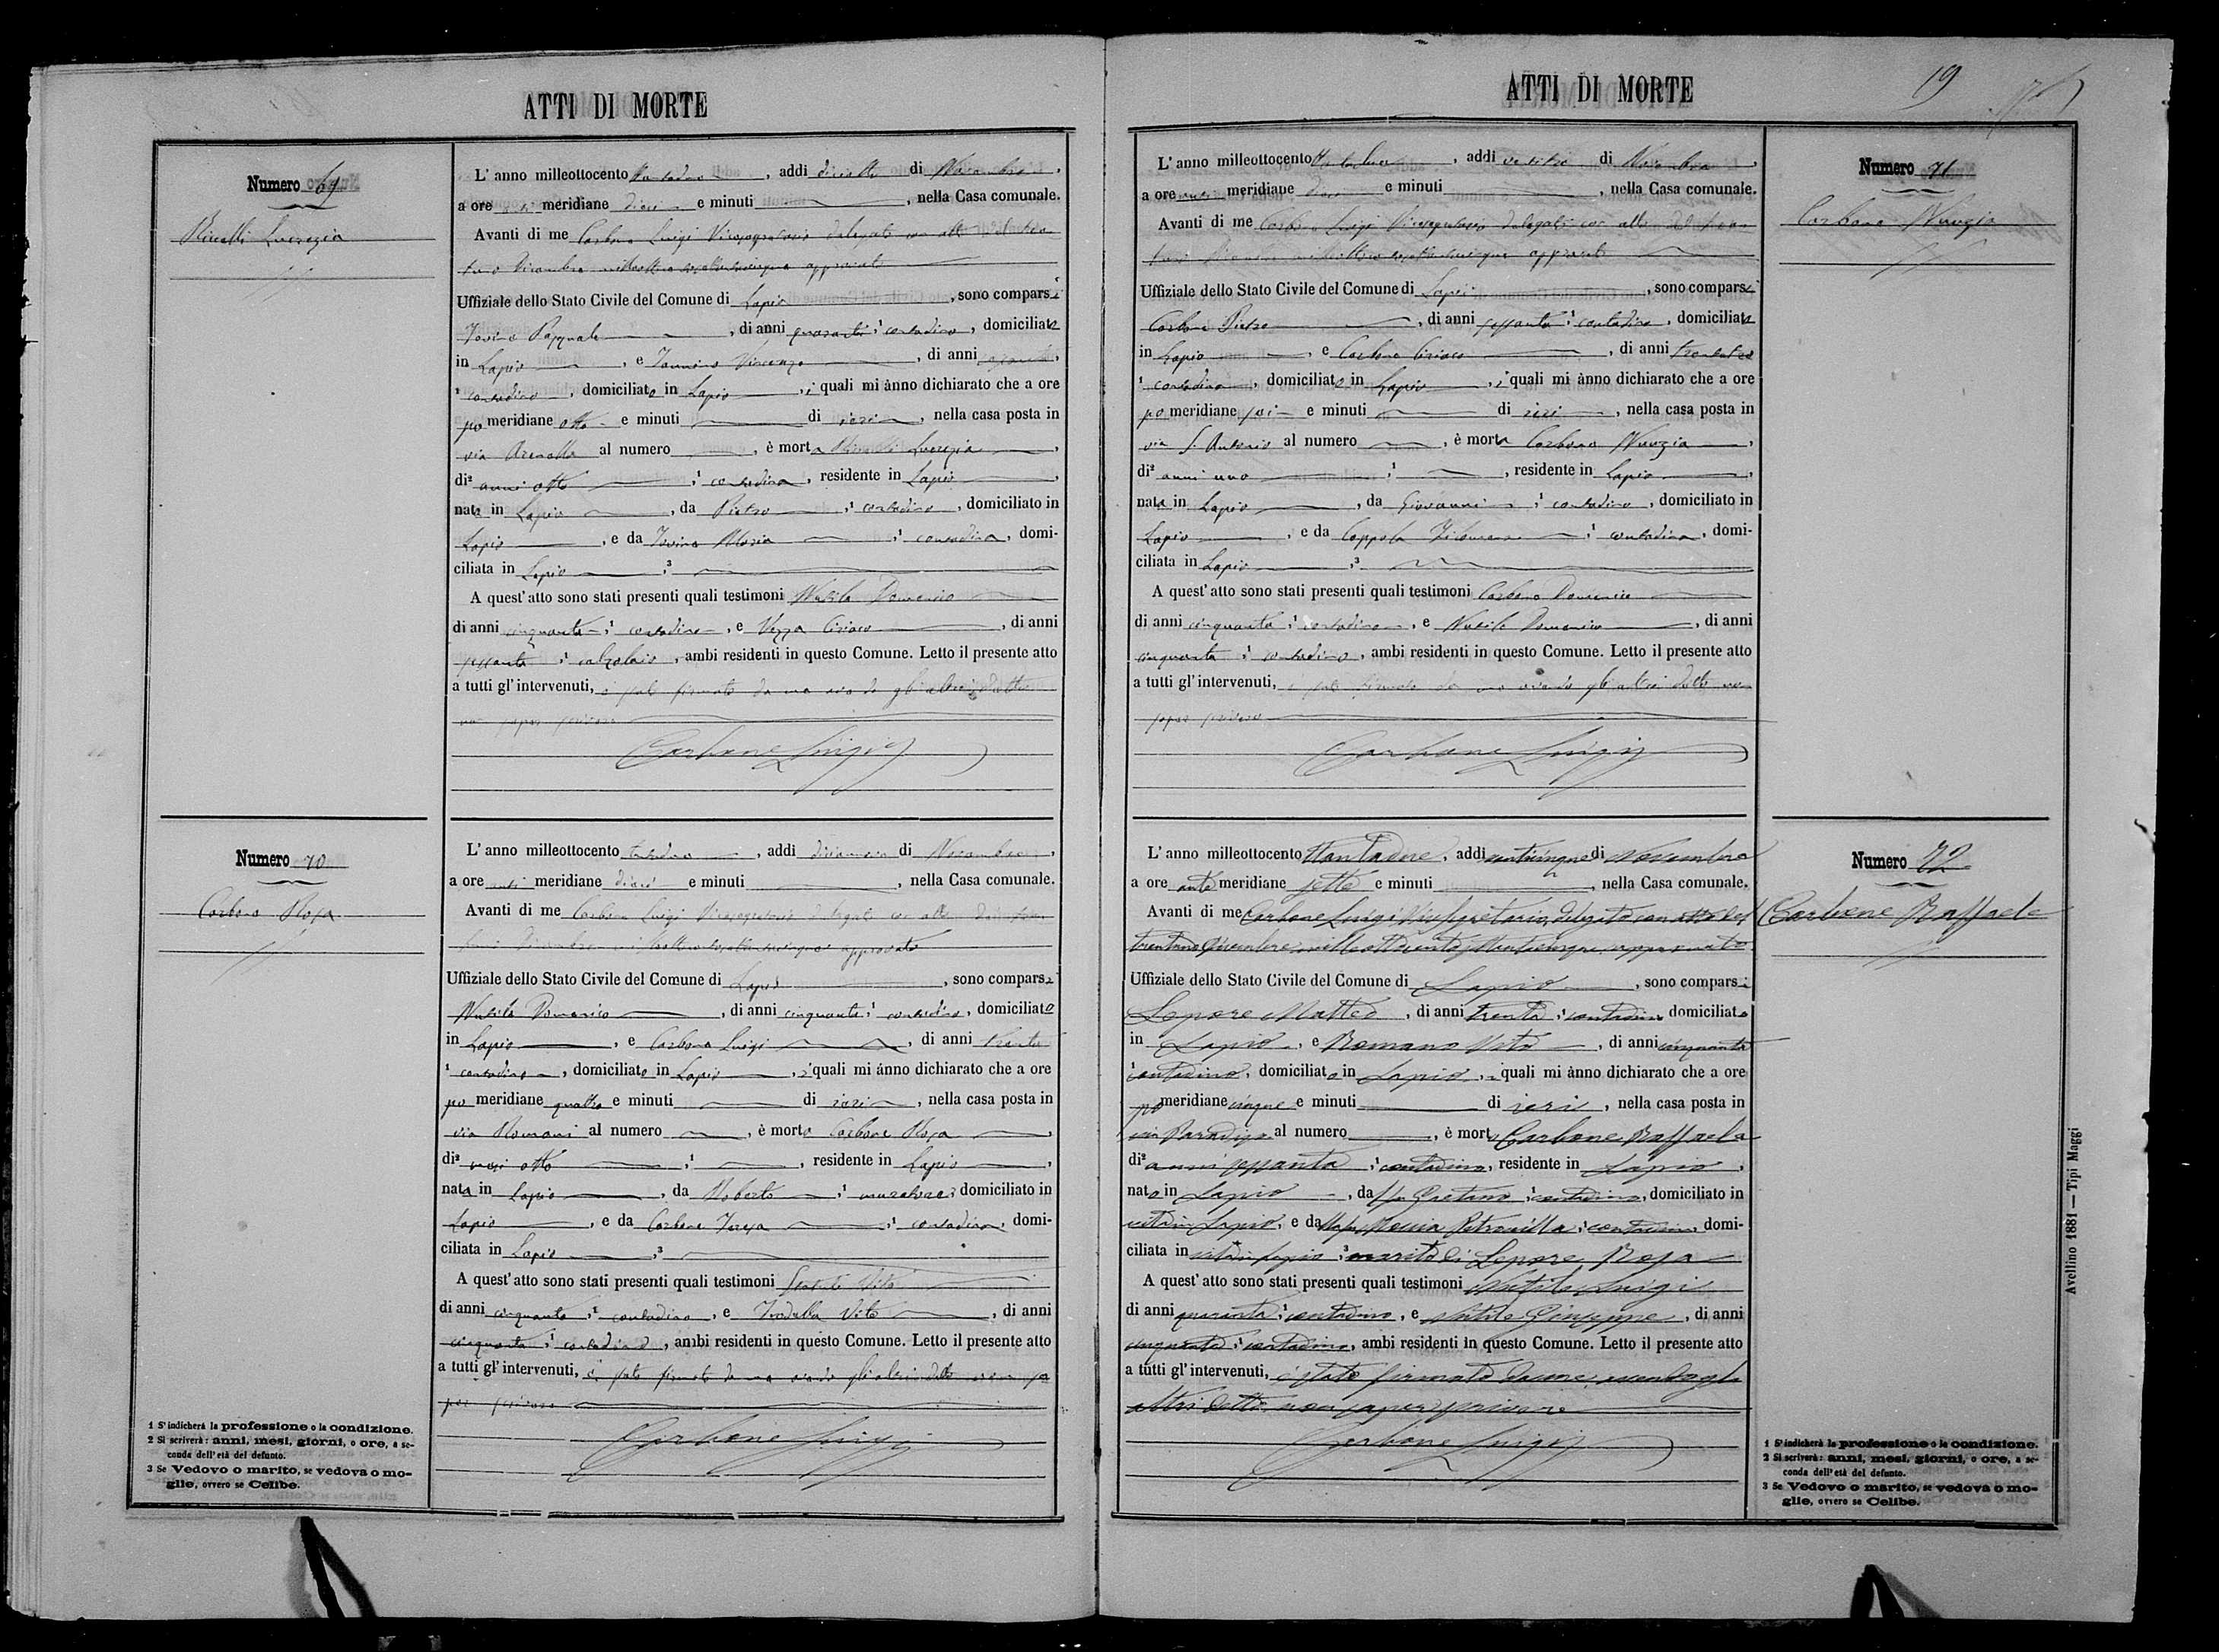 ATTI DI MORTE
Numero 69
Rinaldi Lucrezia
L' anno milleottocento ottantadue, addi diciotto di Novembre,
a ore meridiane dieci e minuti, nella Casa comunale.
Avanti di me Carbone Luigi Vicesegretario delegato con atto del tren
tuno Dicembre milleottocentosettantacinque approvato
Uffiziale dello Stato Civile del Comune di Lapio, sono comparsi
Iovino Pasquale, di anni quaranta, contadino, domiciliato
in Lapio, e Vincenzo, di anni
contadino, domiciliato in Lapio, i quali mi ànno dichiarato che a ore
po meridiane otto e minuti di ieri, nella casa posta in
via al numero, è morta Rinaldi Lucrezia,
di² anni otto, ¹ contadina, residente in Lapio,
nata in Lapio, da Pietro, ¹ contadino, domiciliato in
Lapio, e da Iovino Maria, ¹ contadina, domi-
ciliata in Lapio, ³
A quest' atto sono stati presenti quali testimoni Nutile Domenico
di anni cinquanta, ¹ contadino, e Vezza Ciriaco, di anni
sessanta, ¹ calzolaio, ambi residenti in questo Comune. Letto il presente atto
a tutti gl' intervenuti, è stato firmato da me avendo gli altri detto
non saper scrivere
Carbone Luigi
Numero 70
Carbone Rosa
L' anno milleottocento ottantadue, addi di Novembre,
a ore anti meridiane dieci e minuti, nella Casa comunale.
Avanti di me Carbone Luigi Vicesegretario delegato con atto del tren
tuno Dicembre milleottocentosettantacinque approvato
Uffiziale dello Stato Civile del Comune di Lapio, sono comparsi
Nutile Domenico, di anni cinquanta, ¹ contadino, domiciliato
in Lapio, e Carbone Luigi, di anni trenta
¹ contadino, domiciliato in Lapio, i quali mi ànno dichiarato che a ore
po meridiane quattro e minuti di ieri, nella casa posta in
via Romani al numero, è morta Carbone Rosa,
di² mesi otto, ¹, residente in Lapio,
nata in Lapio, da Roberto, ¹ muratore, domiciliato in
Lapio, e da Carbone Teresa, ¹ contadina, domi-
ciliata in Lapio, ³
A quest' atto sono stati presenti quali testimoni Vito
di anni cinquanta, ¹ contadino, e Vito, di anni
cinquanta, ¹ contadino, ambi residenti in questo Comune. Letto il presente atto
a tutti gl' intervenuti, è stato firmato da me avendo gli altri detto non sa
per scrivere
Carbone Luigi
1 S' indicherà la professione o la condizione.
2 Si scriverà: anni, mesi, giorni, o ore, a se-
conda dell' età del defunto.
3 Se Vedovo o marito, se vedova o mo-
glie, ovvero se Celibe.
ATTI DI MORTE
19
Numero 71
Carbone Nunzia
L' anno milleottocento ottantadue, addi ventitre di Novembre,
a ore meridiane e minuti, nella Casa comunale.
Avanti di me Carbone Luigi Vicesegretario delegato con atto del tren
tuno Dicembre milleottocentosettantacinque approvato
Uffiziale dello Stato Civile del Comune di Lapio, sono comparsi
Carbone Pietro, di anni sessanta, ¹ contadino, domiciliato
in Lapio, e Carbone Ciriaco, di anni trentatre
¹ contadino, domiciliato in Lapio, i quali mi ànno dichiarato che a ore
po meridiane sei e minuti di ieri, nella casa posta in
via S. Antonio al numero, è morta Carbone Nunzia,
di² anni uno, ¹, residente in Lapio,
nata in Lapio, da Giovanni, ¹ contadino, domiciliato in
Lapio, e da Coppola Filomena, ¹ contadina, domi-
ciliata in Lapio, ³
A quest' atto sono stati presenti quali testimoni Carbone Domenico
di anni cinquanta, ¹ contadino, e Nutile Domenico, di anni
cinquanta, ¹ contadino, ambi residenti in questo Comune. Letto il presente atto
a tutti gl' intervenuti, è stato firmato da me avendo gli altri detto non
saper scrivere
Carbone Luigi
Numero 72
Carbone Raffaele
L' anno milleottocento ottantadue, addi venticinque di Novembre
a ore ante meridiane sette e minuti, nella Casa comunale.
Avanti di me Carbone Luigi Vicesegretario, delegato con atto del
trentuno Dicembre milleottocentosettantacinque approvato
Uffiziale dello Stato Civile del Comune di Lapio, sono comparsi
Lepore Matteo, di anni trenta, ¹ contadino domiciliato
in Lapio, e Romano Vito, di anni cinquanta
¹ contadino, domiciliato in Lapio, i quali mi ànno dichiarato che a ore
po meridiane cinque e minuti di ieri, nella casa posta in
via Paradiso al numero, è morto Carbone Raffaele
di² anni sessanta, ¹ contadino, residente in Lapio,
nato in Lapio, da fu Gaetano, ¹ contadino, domiciliato in
vita in Lapio, e da fu Meccia Petronilla, ¹ contadina, domi-
ciliata in vita in Lapio, ³ marito di Lepore Rosa
A quest' atto sono stati presenti quali testimoni Nutile Luigi
di anni quaranta, ¹ contadino, e Nutile Giuseppe, di anni
cinquanta, ¹ contadino, ambi residenti in questo Comune. Letto il presente atto
a tutti gl' intervenuti, è stato firmato da me, avendo gli
altri detto non saper scrivere
Carbone Luigi
1 S' indicherà la professione o la condizione.
2 Si scriverà: anni, mesi, giorni, o ore, a se-
conda dell' età del defunto.
3 Se Vedovo o marito, se vedova o mo-
glie, ovvero se Celibe.
Avellino 1881 — Tipi Maggi